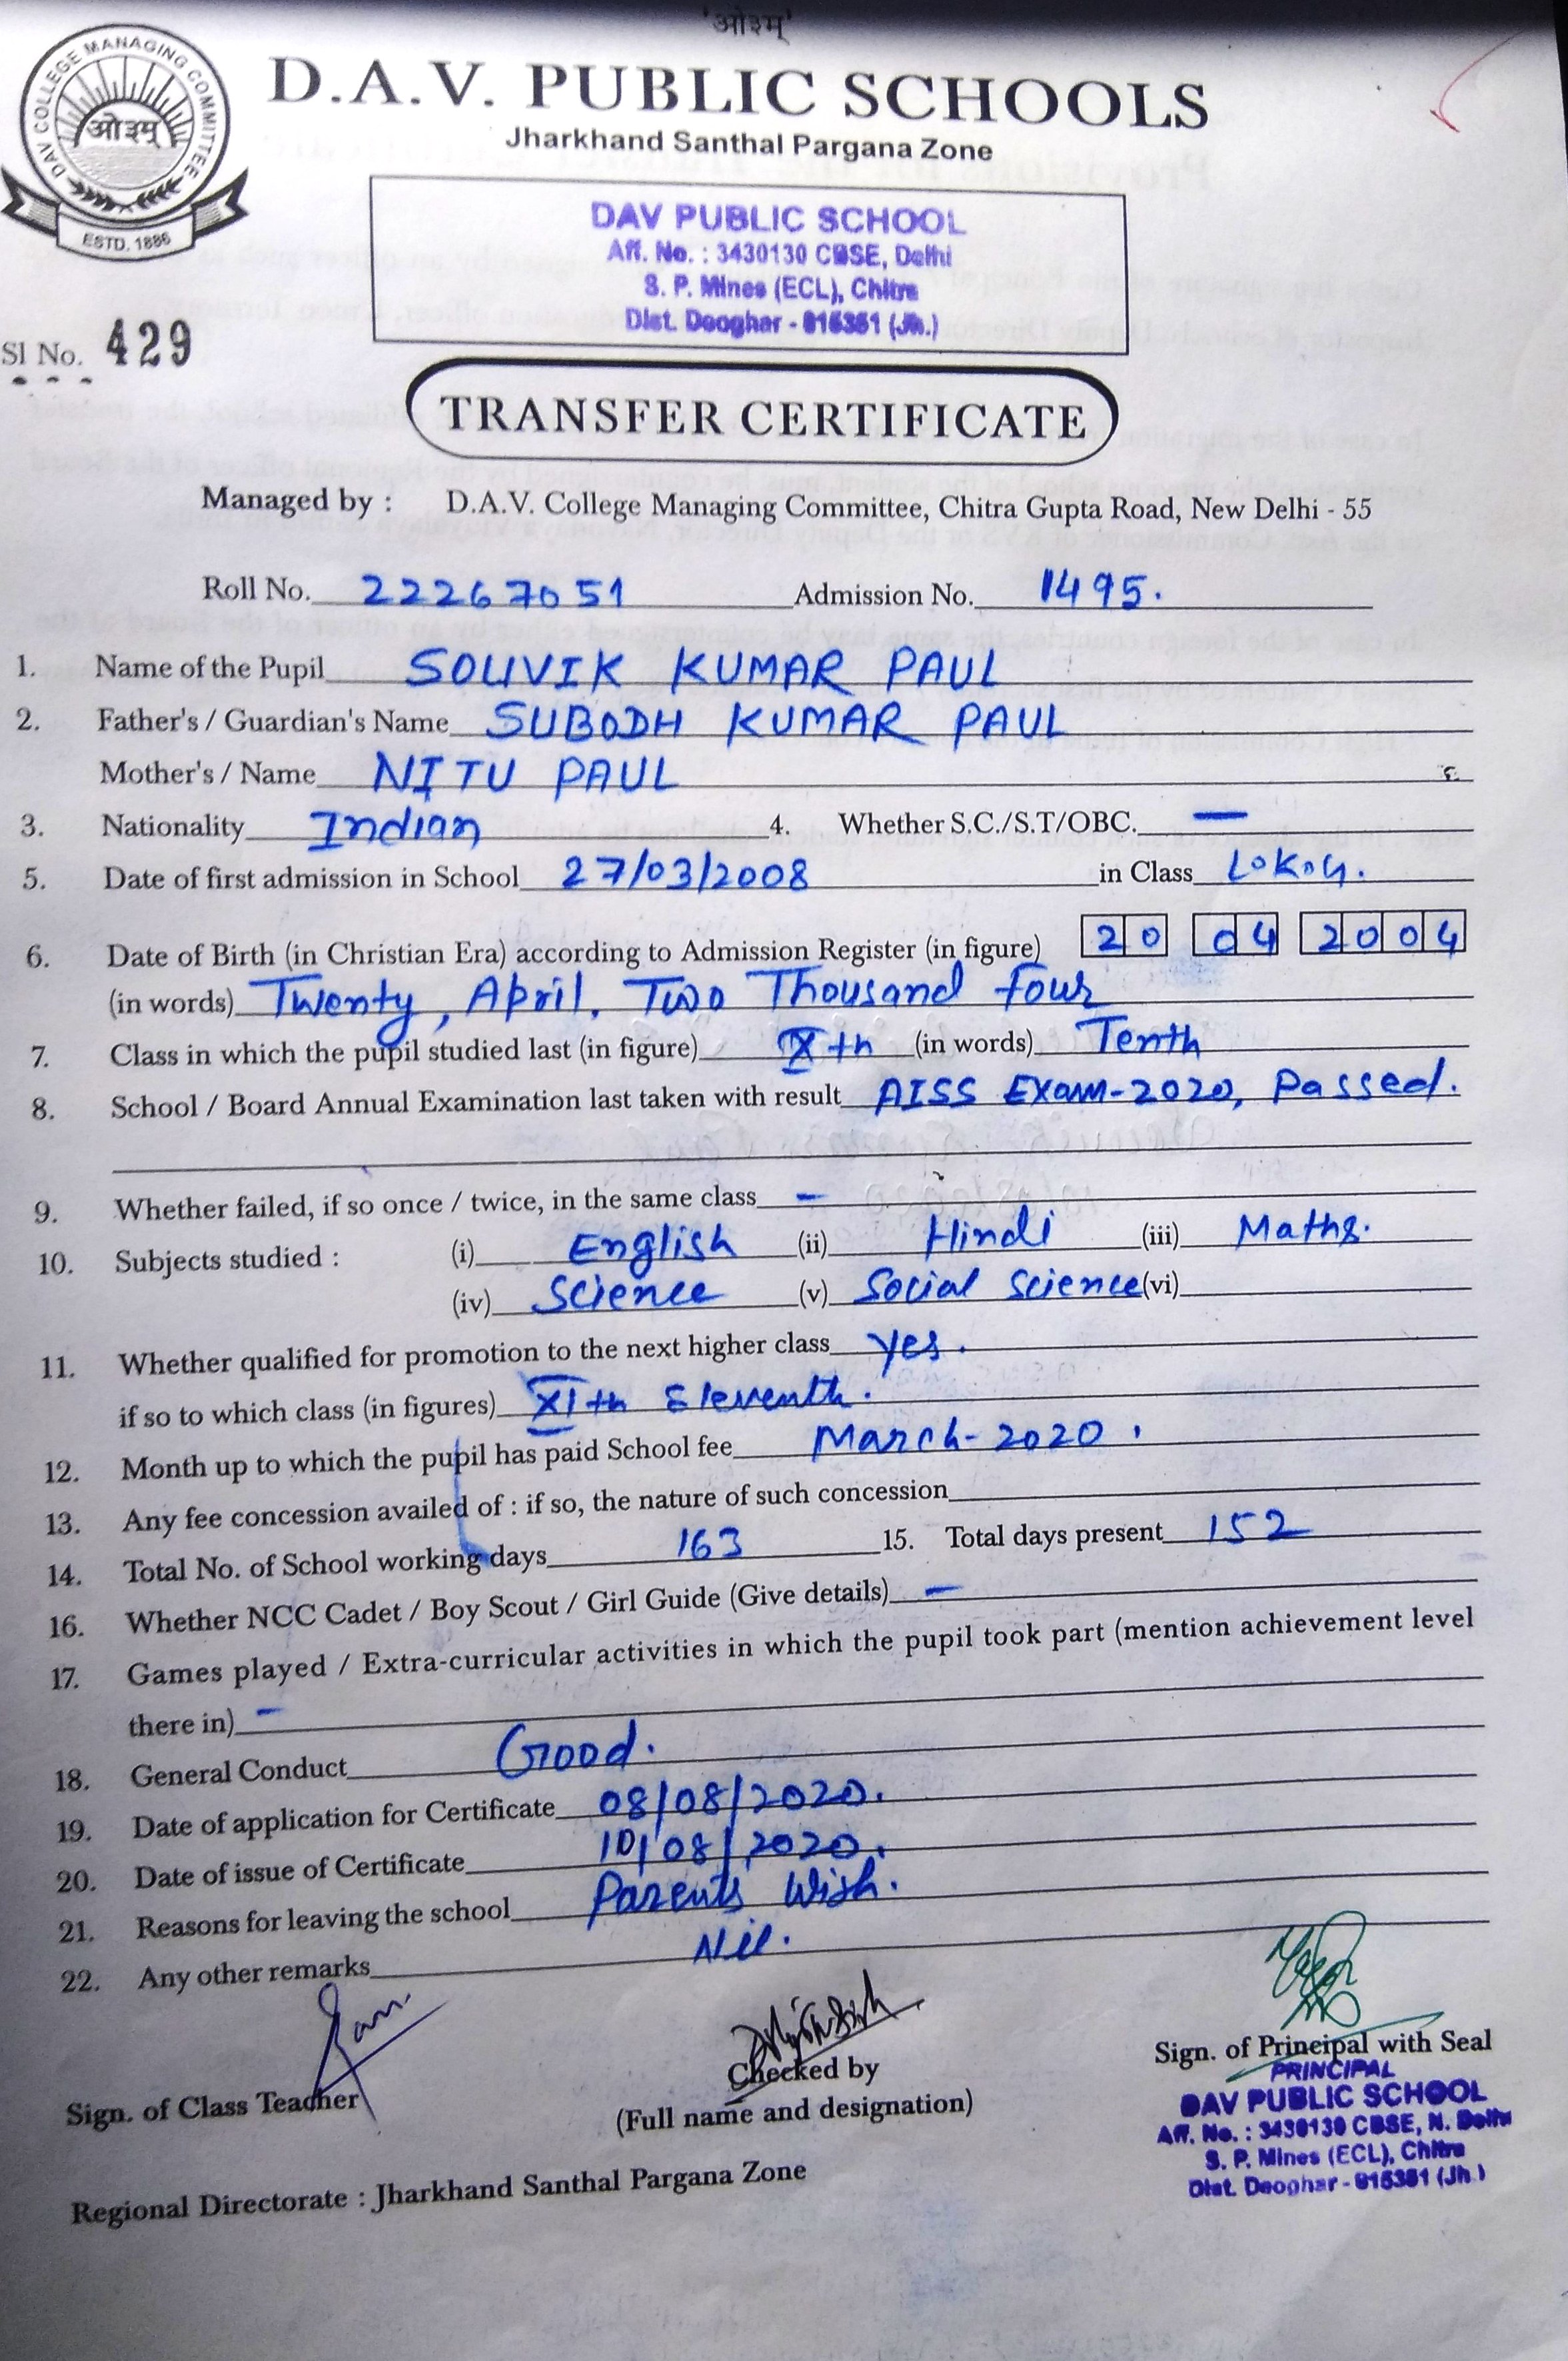 'ओ३म्'
DAV COLLEGE MANAGING COMMITTEE
ओ३म्
ESTD. 1886
D.A.V. PUBLIC SCHOOLS
Jharkhand Santhal Pargana Zone
DAV PUBLIC SCHOOL
Aff. No. : 3430130 CBSE, Delhi
S. P. Mines (ECL), Chitra
Dist. Deoghar - 815351 (Jh.)
Sl No. 429
TRANSFER CERTIFICATE
Managed by : D.A.V. College Managing Committee, Chitra Gupta Road, New Delhi - 55
Roll No. 22267051 Admission No. 1495.
1. Name of the Pupil SOUVIK KUMAR PAUL
2. Father's / Guardian's Name SUBODH KUMAR PAUL
Mother's / Name NITU PAUL
3. Nationality Indian 4. Whether S.C./S.T/OBC. —
5. Date of first admission in School 27/03/2008 in Class LOKG.
6. Date of Birth (in Christian Era) according to Admission Register (in figure) 20 04 2004
(in words) Twenty, April. Two Thousand four
7. Class in which the pupil studied last (in figure) Xth (in words) Tenth
8. School / Board Annual Examination last taken with result AISS Exam-2020, Passed.
9. Whether failed, if so once / twice, in the same class -
10. Subjects studied : (i) English (ii) Hindi (iii) Maths.
(iv) Science (v) Social Science (vi)
11. Whether qualified for promotion to the next higher class yes.
if so to which class (in figures) XIth Eleventh.
12. Month up to which the pupil has paid School fee March-2020.
13. Any fee concession availed of : if so, the nature of such concession
14. Total No. of School working days 163 15. Total days present 152
16. Whether NCC Cadet / Boy Scout / Girl Guide (Give details) -
17. Games played / Extra-curricular activities in which the pupil took part (mention achievement level
there in) -
18. General Conduct Good.
19. Date of application for Certificate 08/08/2020.
20. Date of issue of Certificate 10/08/2020.
21. Reasons for leaving the school Parents Wish.
22. Any other remarks Nil.
Sign. of Class Teacher
Checked by
(Full name and designation)
Sign. of Principal with Seal
PRINCIPAL
DAV PUBLIC SCHOOL
Aff. No. : 3430130 CBSE, N. Delhi
S. P. Mines (ECL), Chitra
Dist. Deoghar - 815351 (Jh.)
Regional Directorate : Jharkhand Santhal Pargana Zone